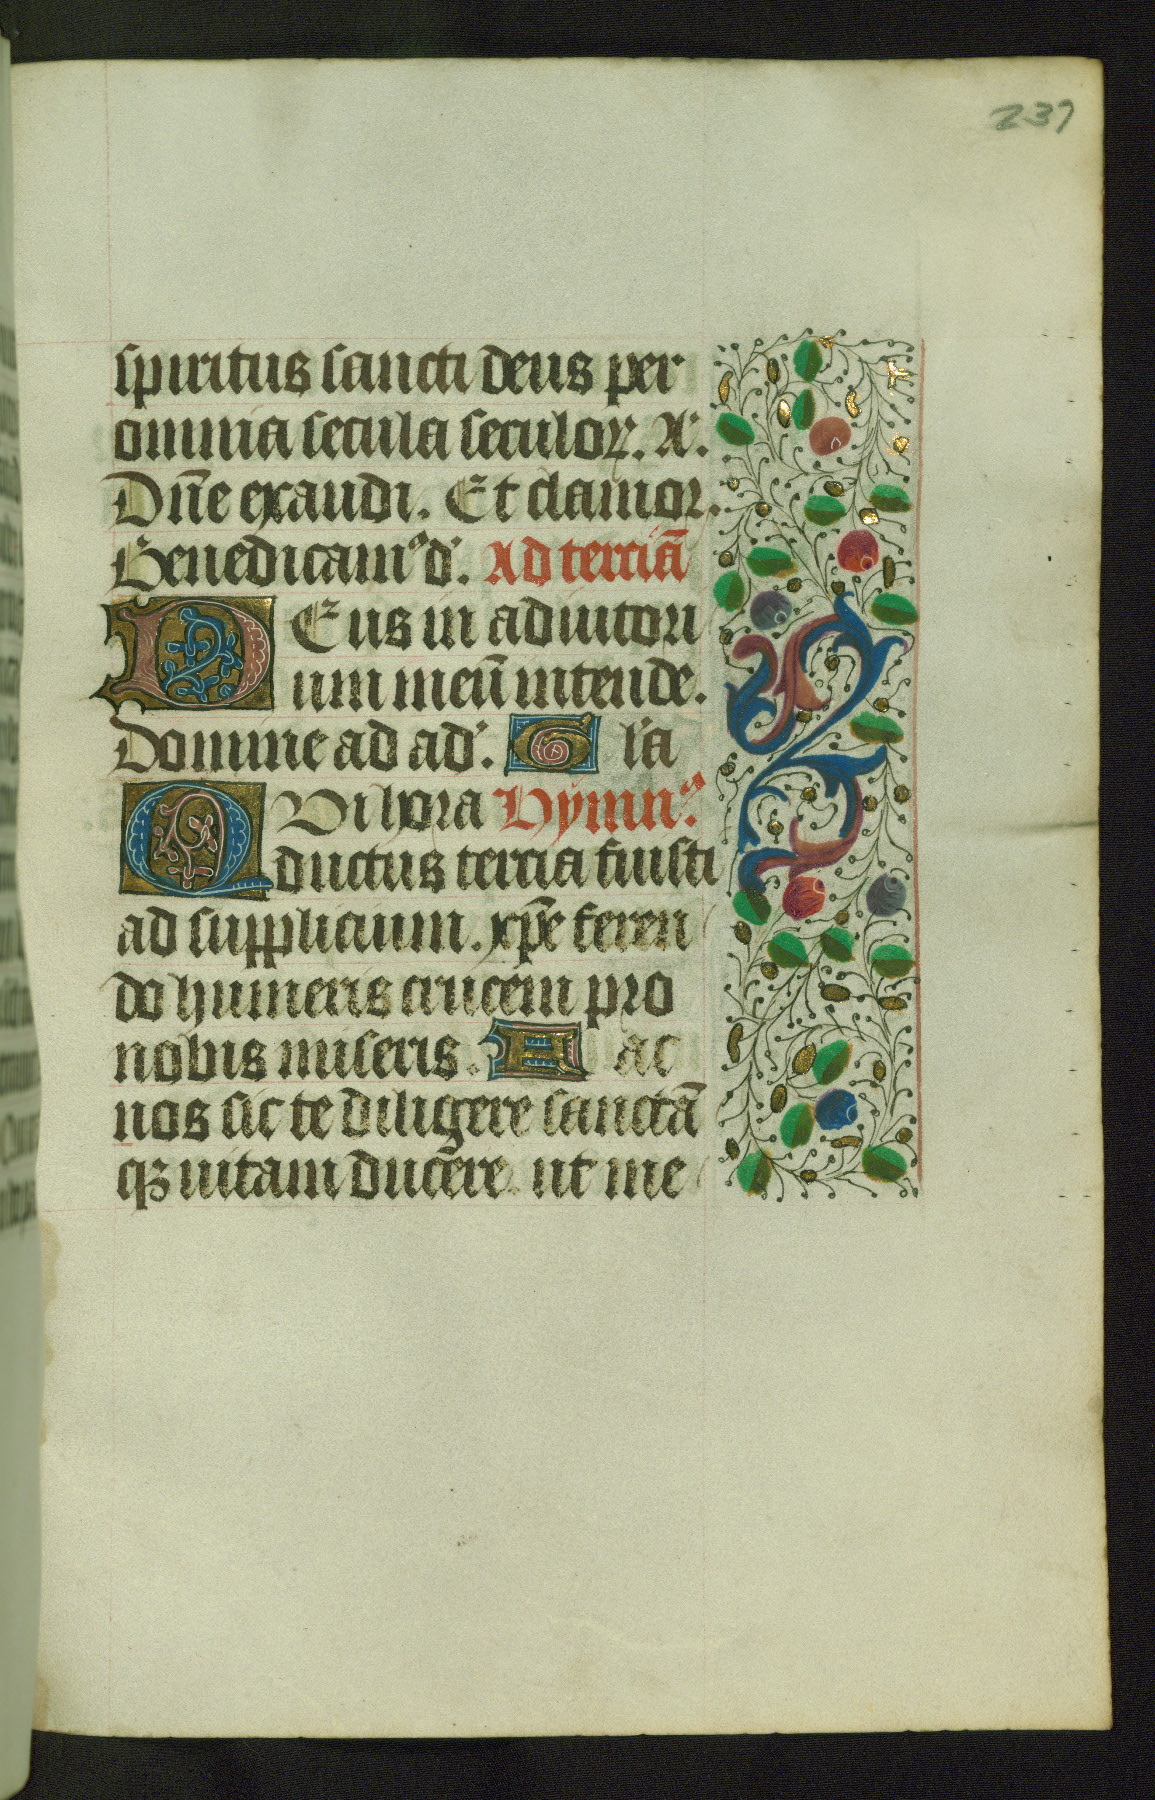 237
spiritus sancti deus per
omnia secula seculoꝝ. A.
Dn̄e exaudi. Et clamor.
Benedicamꝰ d. Ad terciā
DEus in adiutori
um meū intende.
Domine ad ad. Gl'a
QUi hora Hÿmnꝰ.
ductus tercia fuisti
ad supplicium. xp̄e feren
do humeris crucem pro
nobis miseris. Hac
nos sic te diligere sanctā
qꝫ uitam ducēre. ut me